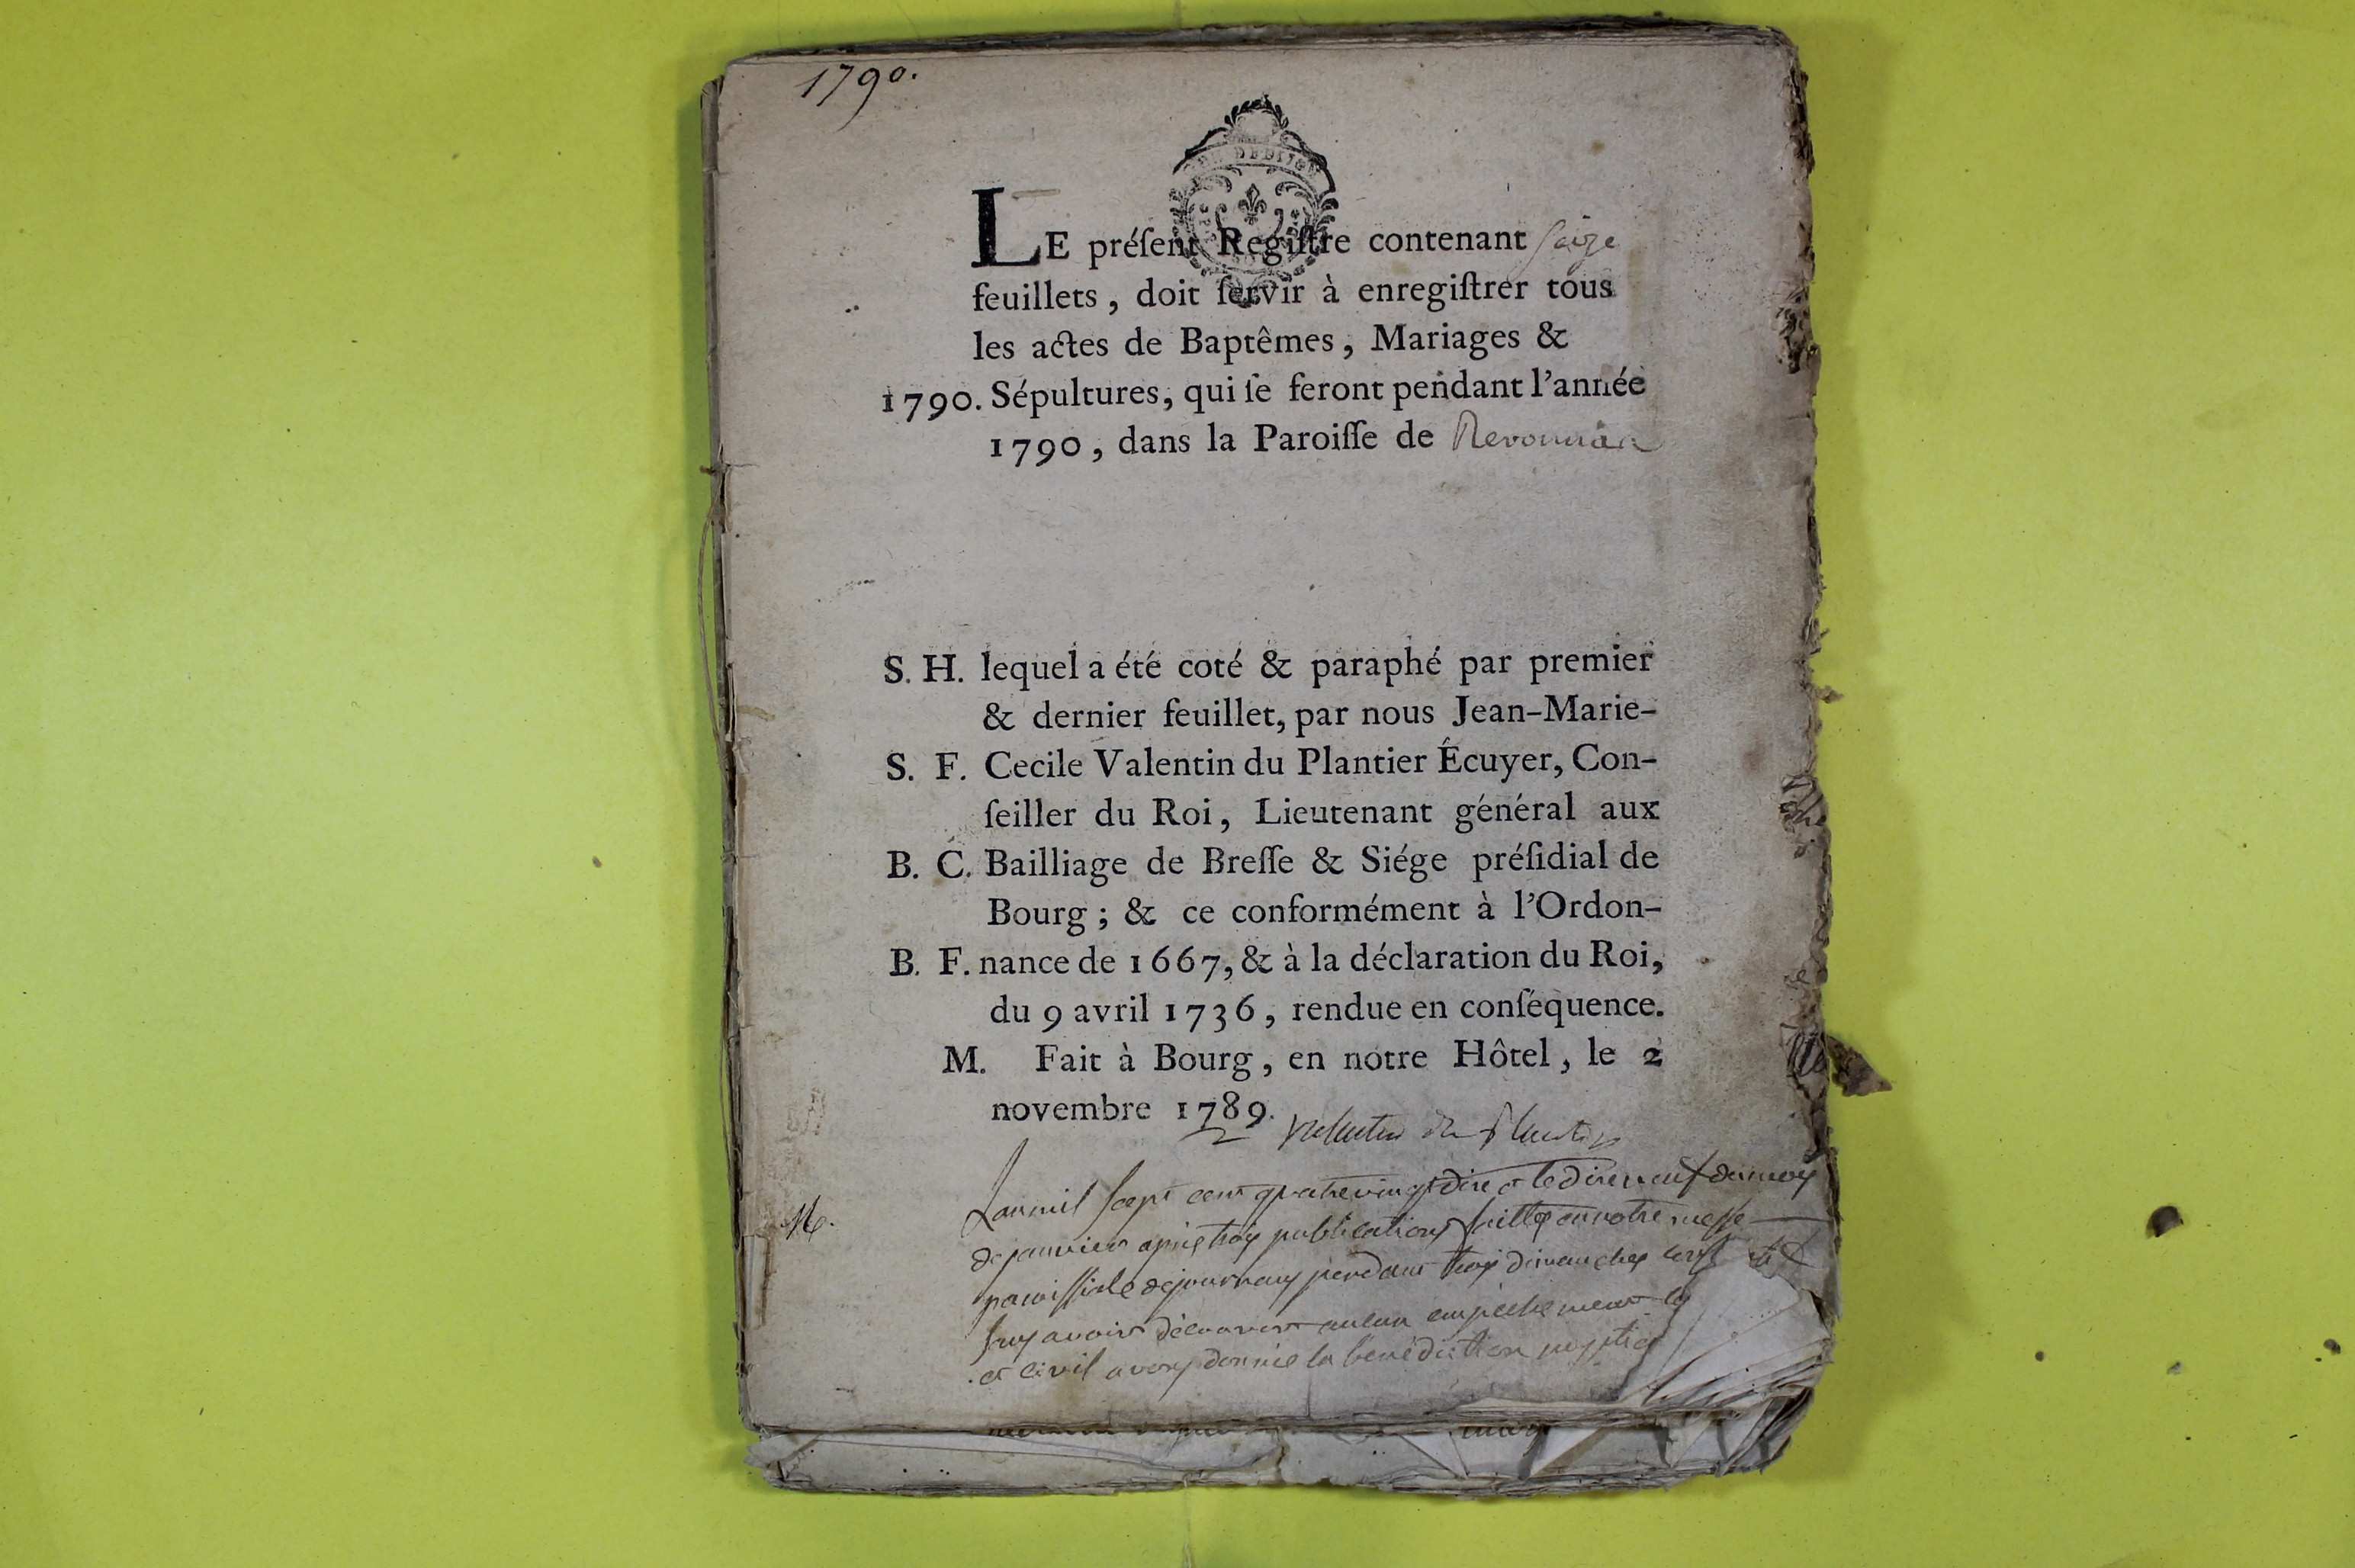 1790.
LE préſent Regiſtre contenant saize
feuillets, doit ſervir à enregiſtrer tous
les actes de Baptêmes, Mariages &
1790. Sépultures, qui ſe feront pendant l'année
1790, dans la Paroiſſe de Revonnas
S. H. lequel a été coté & paraphé par premier
& dernier feuillet, par nous Jean-Marie-
S. F. Cecile Valentin du Plantier Écuyer, Con-
ſeiller du Roi, Lieutenant général aux
B. C. Bailliage de Breſſe & Siége préſidial de
Bourg; & ce conformément à l'Ordon-
B. F. nance de 1667, & à la déclaration du Roi,
du 9 avril 1736, rendue en conſéquence.
M. Fait à Bourg, en notre Hôtel, le 2
novembre 1789.
Valentin du Plantier
M. Lan mil sept cent quatre vingt dix et le dix neuf du mois
de janvier après trois publications faittes en notre messe
paroissiale de journans pendant trois dimanches
sans avoir découvert aucun empêchement
et civil avons donné la bénédiction nuptia